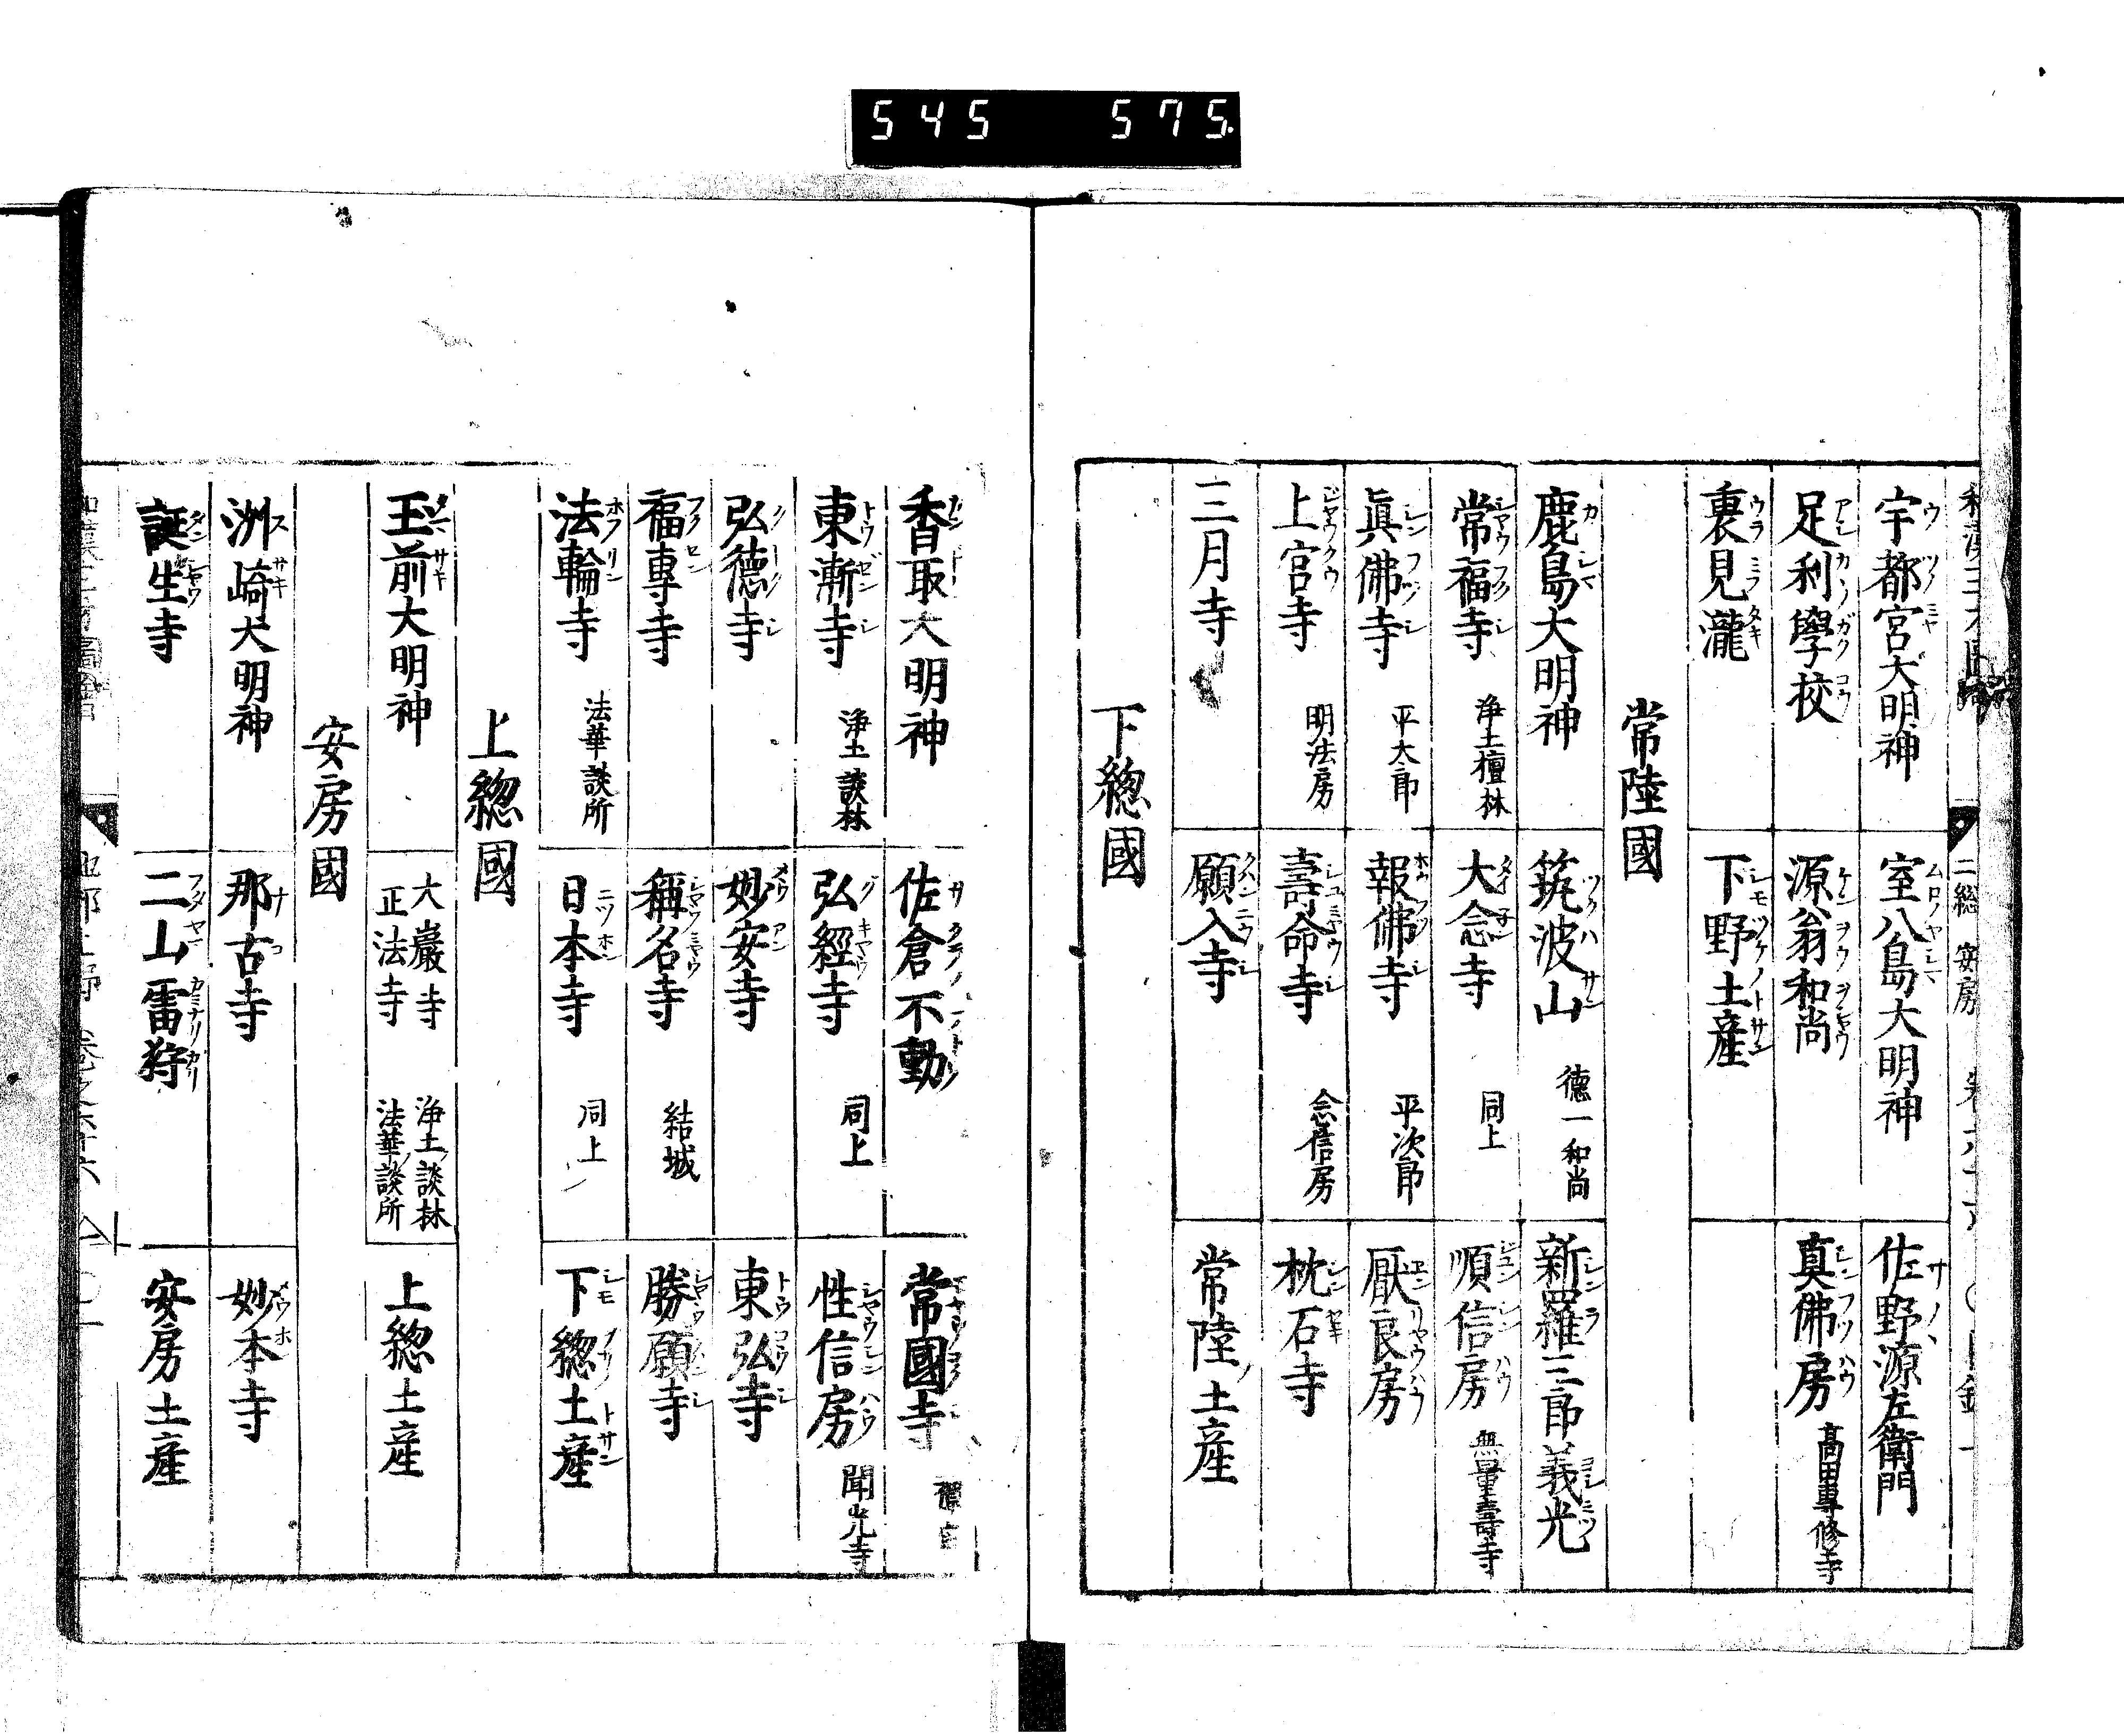 545 575.
宇都宮大明神 室八島大明神 佐野源左衛門
足利學校 源翁和尚 真佛房 髙田專修寺
裏見瀧 下野土産
常陸國
鹿島大明神 筑波山 德一和尚 新羅三郎義光
常福寺 浄土檀林 大念寺 同上 順信房 無量壽寺
眞佛寺 平太郎 報佛寺 平次郎 厭良房
上宮寺 明法房 壽命寺 念信房 枕石寺
三月寺 願入寺 常陸土産
下総國
香取大明神 佐倉不動 常國寺
東漸寺 浄土談林 弘經寺 同上 性信房 聞光寺
弘德寺 妙安寺 東弘寺
福專寺 稱名寺 結城 勝願寺
法輪寺 法華談所 日本寺 同上 下総土産
上総國
玉前大明神 大巖寺 浄土談林 正法寺 法華談所 上総土産
安房國
洲崎大明神 那古寺 妙本寺
誕生寺 二山雷狩 安房土産